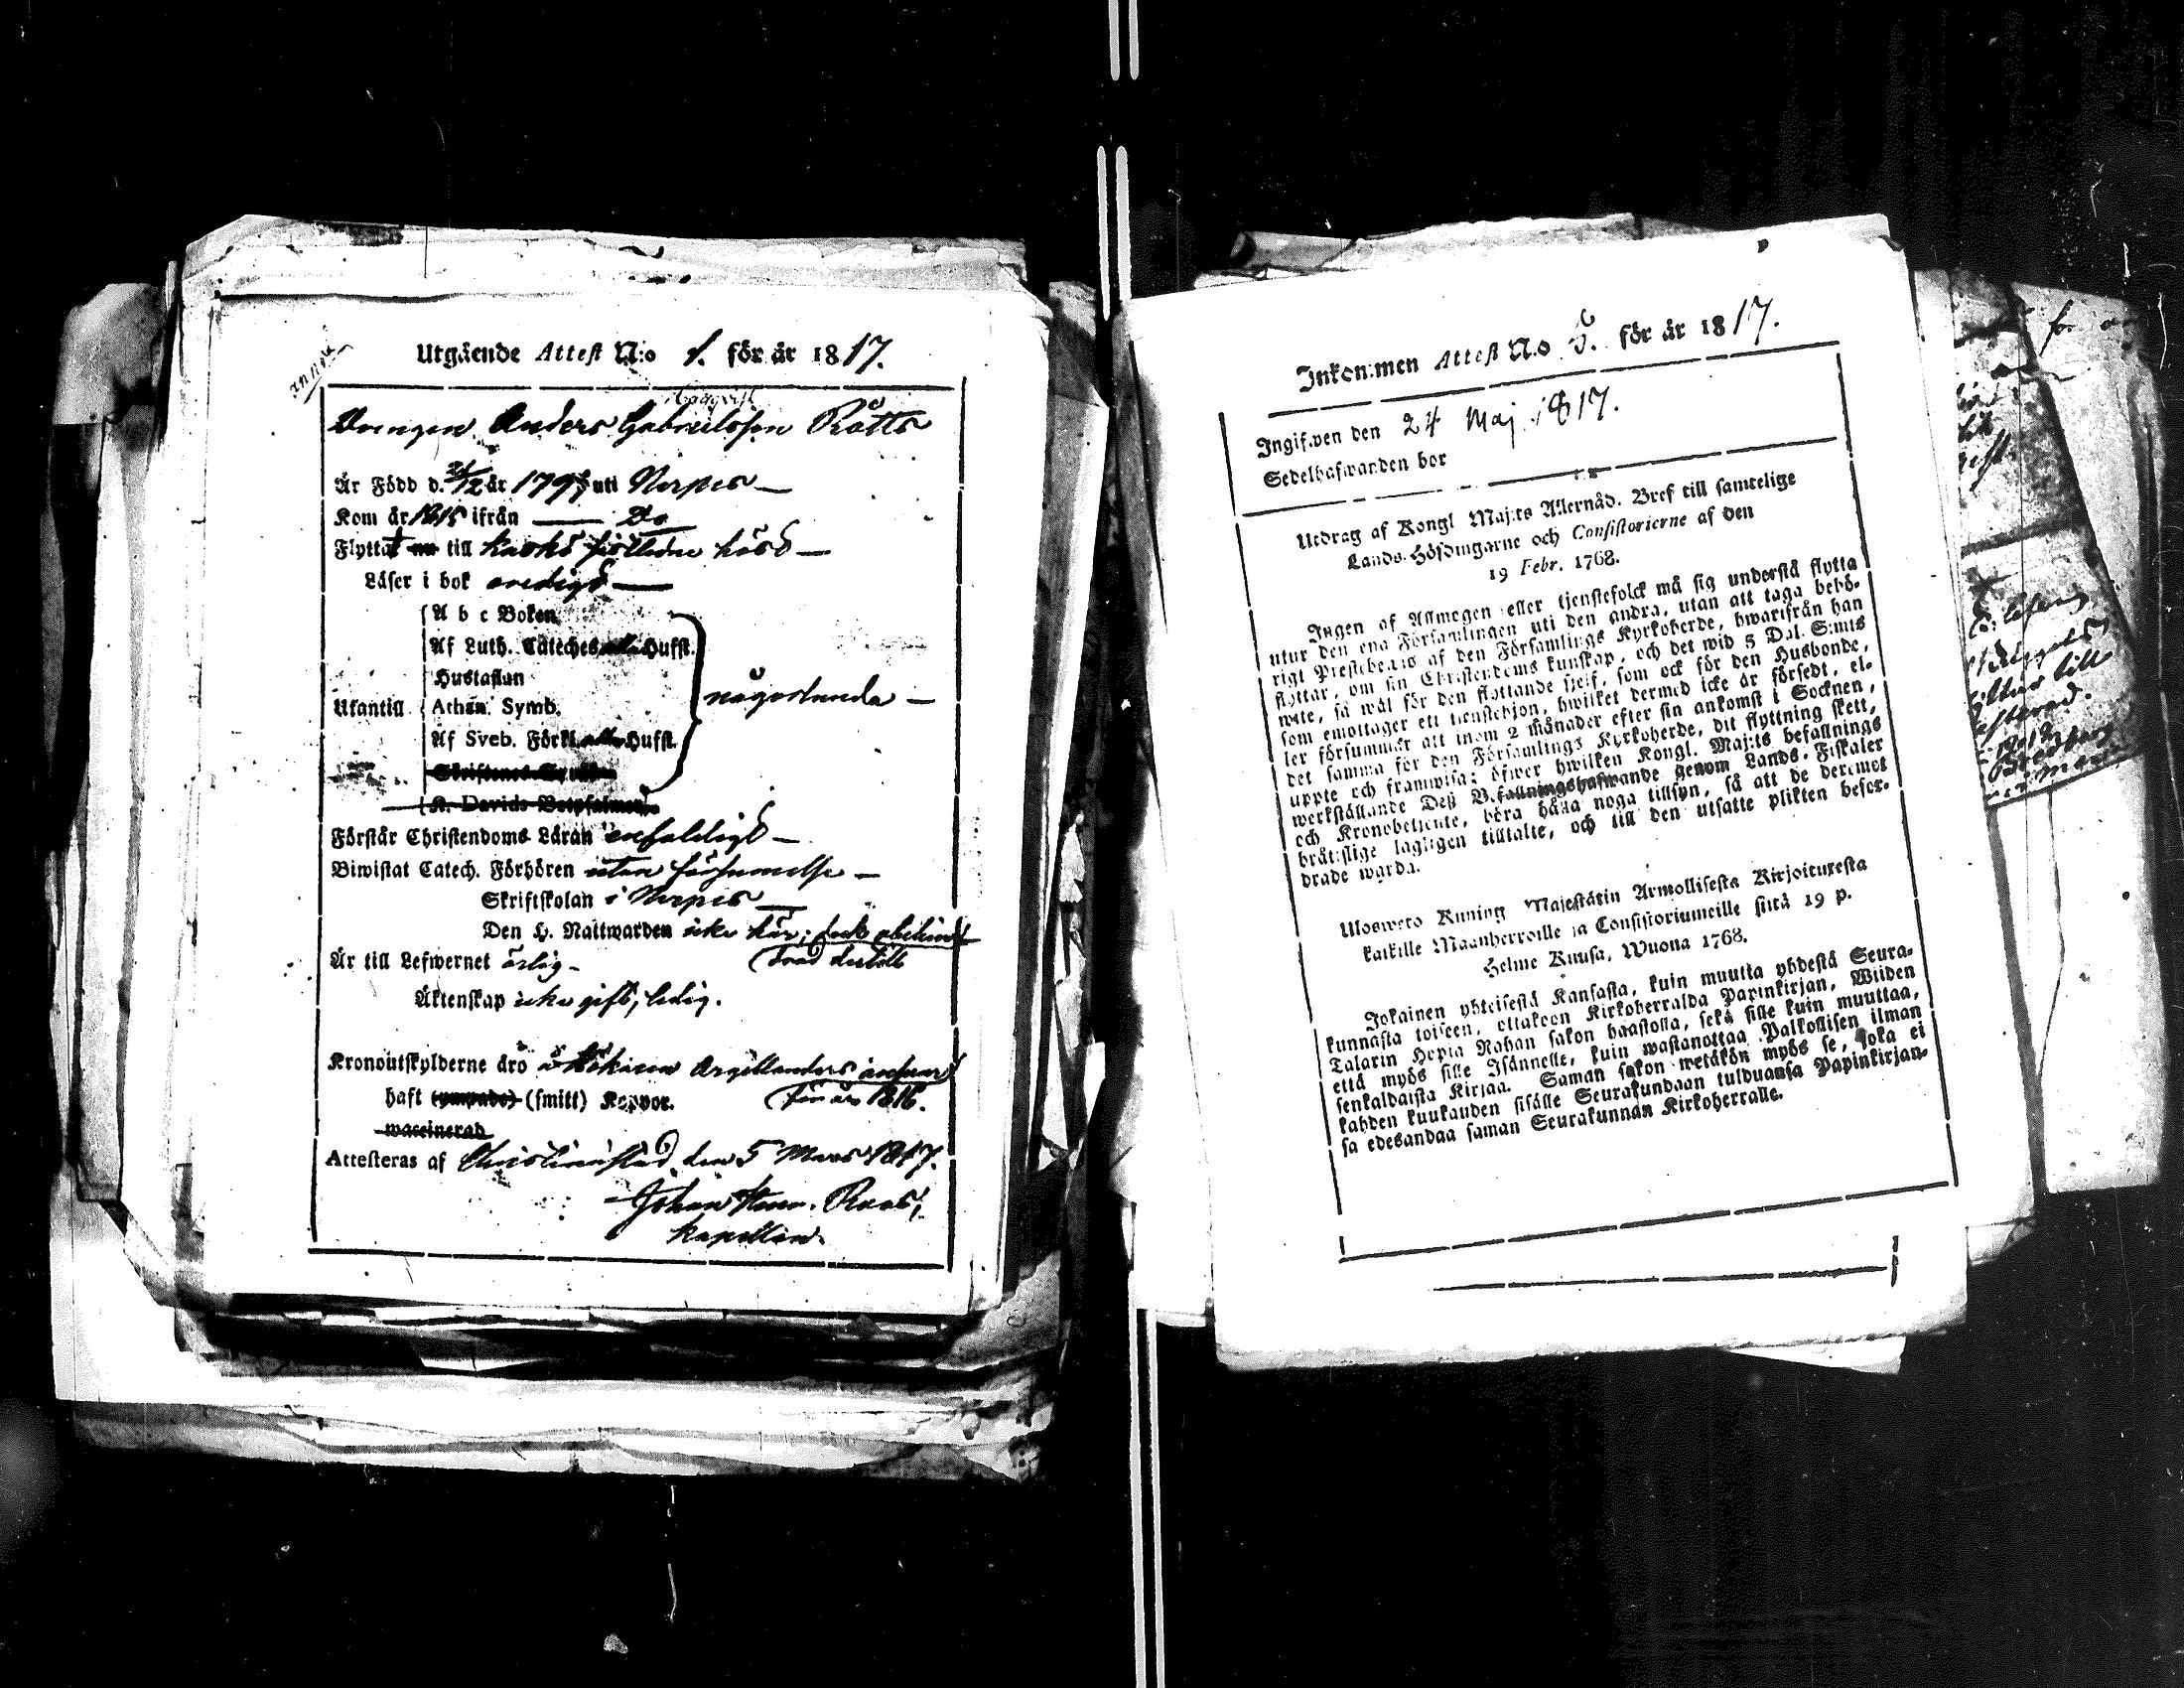 Utgående Attest N:o 1. för år 1817.
Drengen Anders Gabrielsson Rátts
Är Född d. 21/12 år 1797 uti Nerpes —
Kom år 1815 ifrån —— Do
Flyttat till Kaskö sistledne höst —
Läser i bok oredigt —
A b c Boken
Af Luth. Cateches Hufst.
Hustaflan
Utantill Athan. Symb. någorlunda —
Af Sveb. Förkl. alla Hufst.
K. Davids Botpsalmer
Förstår Christendoms Läran enfaldigt —
Biwistat Catech. Förhören utan försummelse —
Skriftskolan i Nerpes —
Den H. Nattwarden icke här; dock obehindrad dertill
Är till Lefwernet ärlig —
Äktenskap icke gift, ledig.
Kronoutskylderne äro
för år 1816.
haft (ympade) (smitt) Koppor.
waccinerad
Attesteras af Christinæstad den 5 Mars 1817.
Johan Roos,
Kapellan.
Inkommen Attest N:o för år 1817.
Ingifwen den 24 Maj 1817.
Sedelhafwanden bor
Utdrag af Kongl Maj:ts Allernåd. Bref till samtelige
Lands-Höfdingarne och Consistorierne af den
19 Febr. 1768.
Ingen af Allmogen eller tjenstefolck må sig understå flytta
utur den ena Församlingen uti den andra, utan att taga behö-
rigt Prestebewis af den Församlings Kyrkoherde, hwarifrån han
flyttar, om sin Christendoms kunskap, och det wid 5 Dal. S:mts
wite, så wäl för den flyttande sjelf, som ock för den Husbonde,
som emottager ett tienstehjon, hwilket dermed icke är försedt, el-
ler försummar att inom 2 månader efter sin ankomst i Socknen,
det samma för den Församlings Kyrkoherde, dit flyttning skett,
uppte och framwisa; öfwer hwilken Kongl. Maj:ts befallnings
werkställande Deß B.fallningshafwande genom Lands-Fiskaler
och Kronobetjente, böra hålla noga tillsyn, så att de deremot
bråtslige lagligen tilltalte, och till den utsatte plikten befor-
drade warda.
Ulosweto Kuning Majestätin Armollisesta Kirjoituxesta
kaikille Maanherroille ja Consistoriumeille siitä 19 p.
Helme Kuusa, Wuona 1768.
Jokainen yhteisestä Kansasta, kuin muutta yhdestä Seura-
kunnasta toiseen, ottakoon Kirkoherralda Papinkirjan, Wiiden
Talarin Hopia Rahan sakon haastolla, sekä sille kuin muuttaa,
että myös sille Isännelle, kuin wastanottaa Palkollisen ilman
senkaldaista Kirjaa. Saman sakon wetäkön myös se, joka ei
kahden kuukauden sisälle Seurakundaan tulduansa Papinkirjan-
sa edesandaa saman Seurakunnan Kirkoherralle.